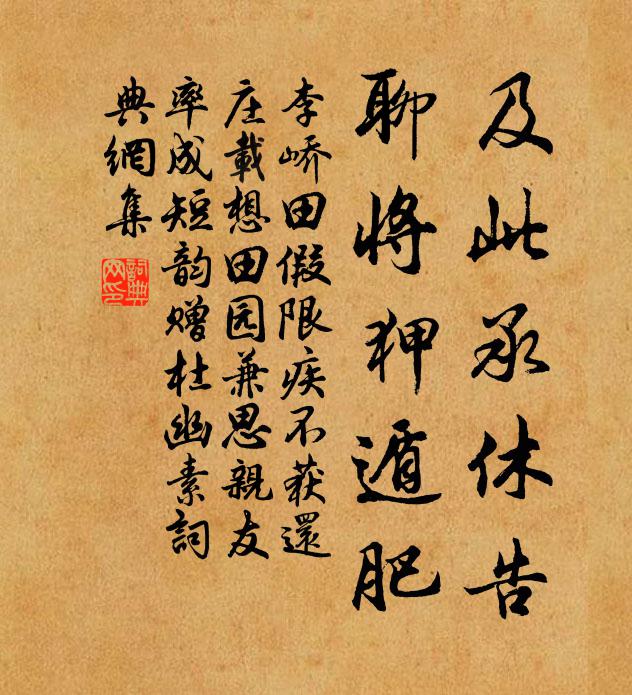 及此承休告
聊将狎遁肥
李峤田假限疾不获還
庄載想田园兼思親友
率成短韵赠杜幽素詞
典網集
詞典
网印